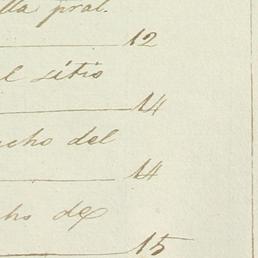 lla pral.
12
el sitio
14
ncho del
14
cho de
15